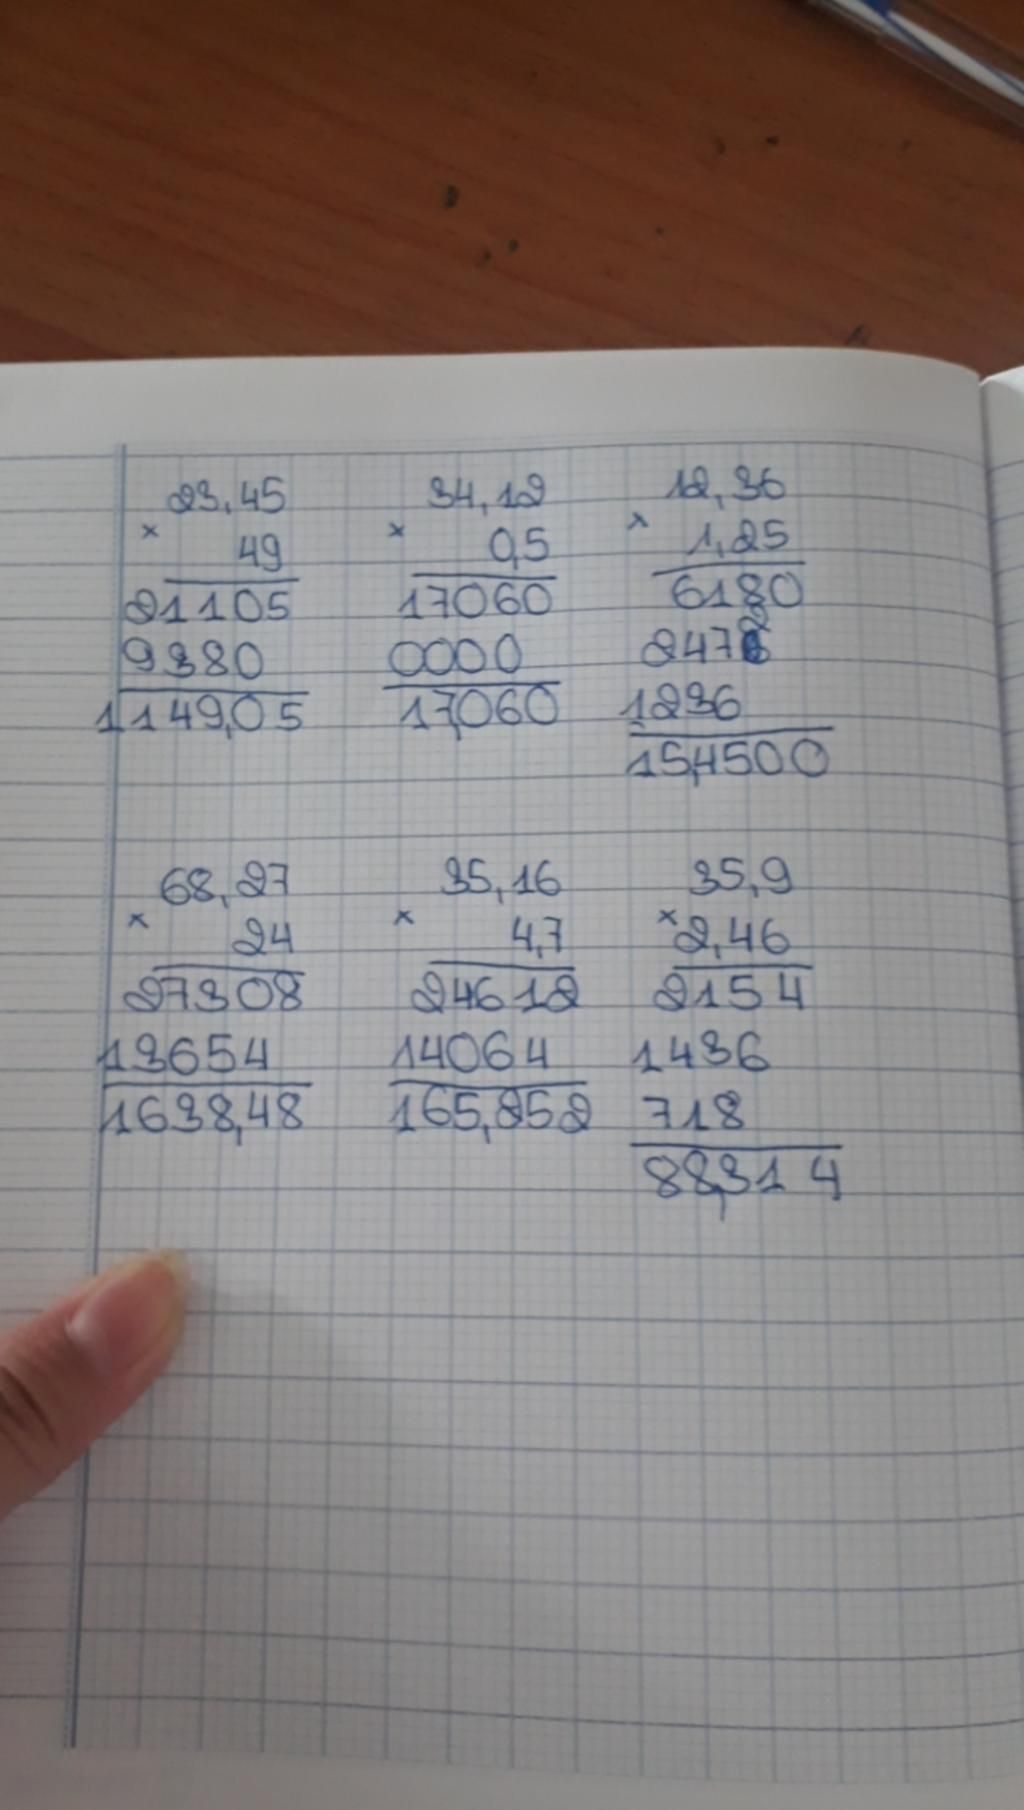 23,45 34,12 12,36
× × ×
49 0,5 1,25
21105 17060 6180
9380 0000 2472
1149,05 17,060 1236
15,4500
68,27 35,16 35,9
× × ×
24 4,7 2,46
27308 24612 2154
13654 14064 1436
1638,48 165,252 718
88,314